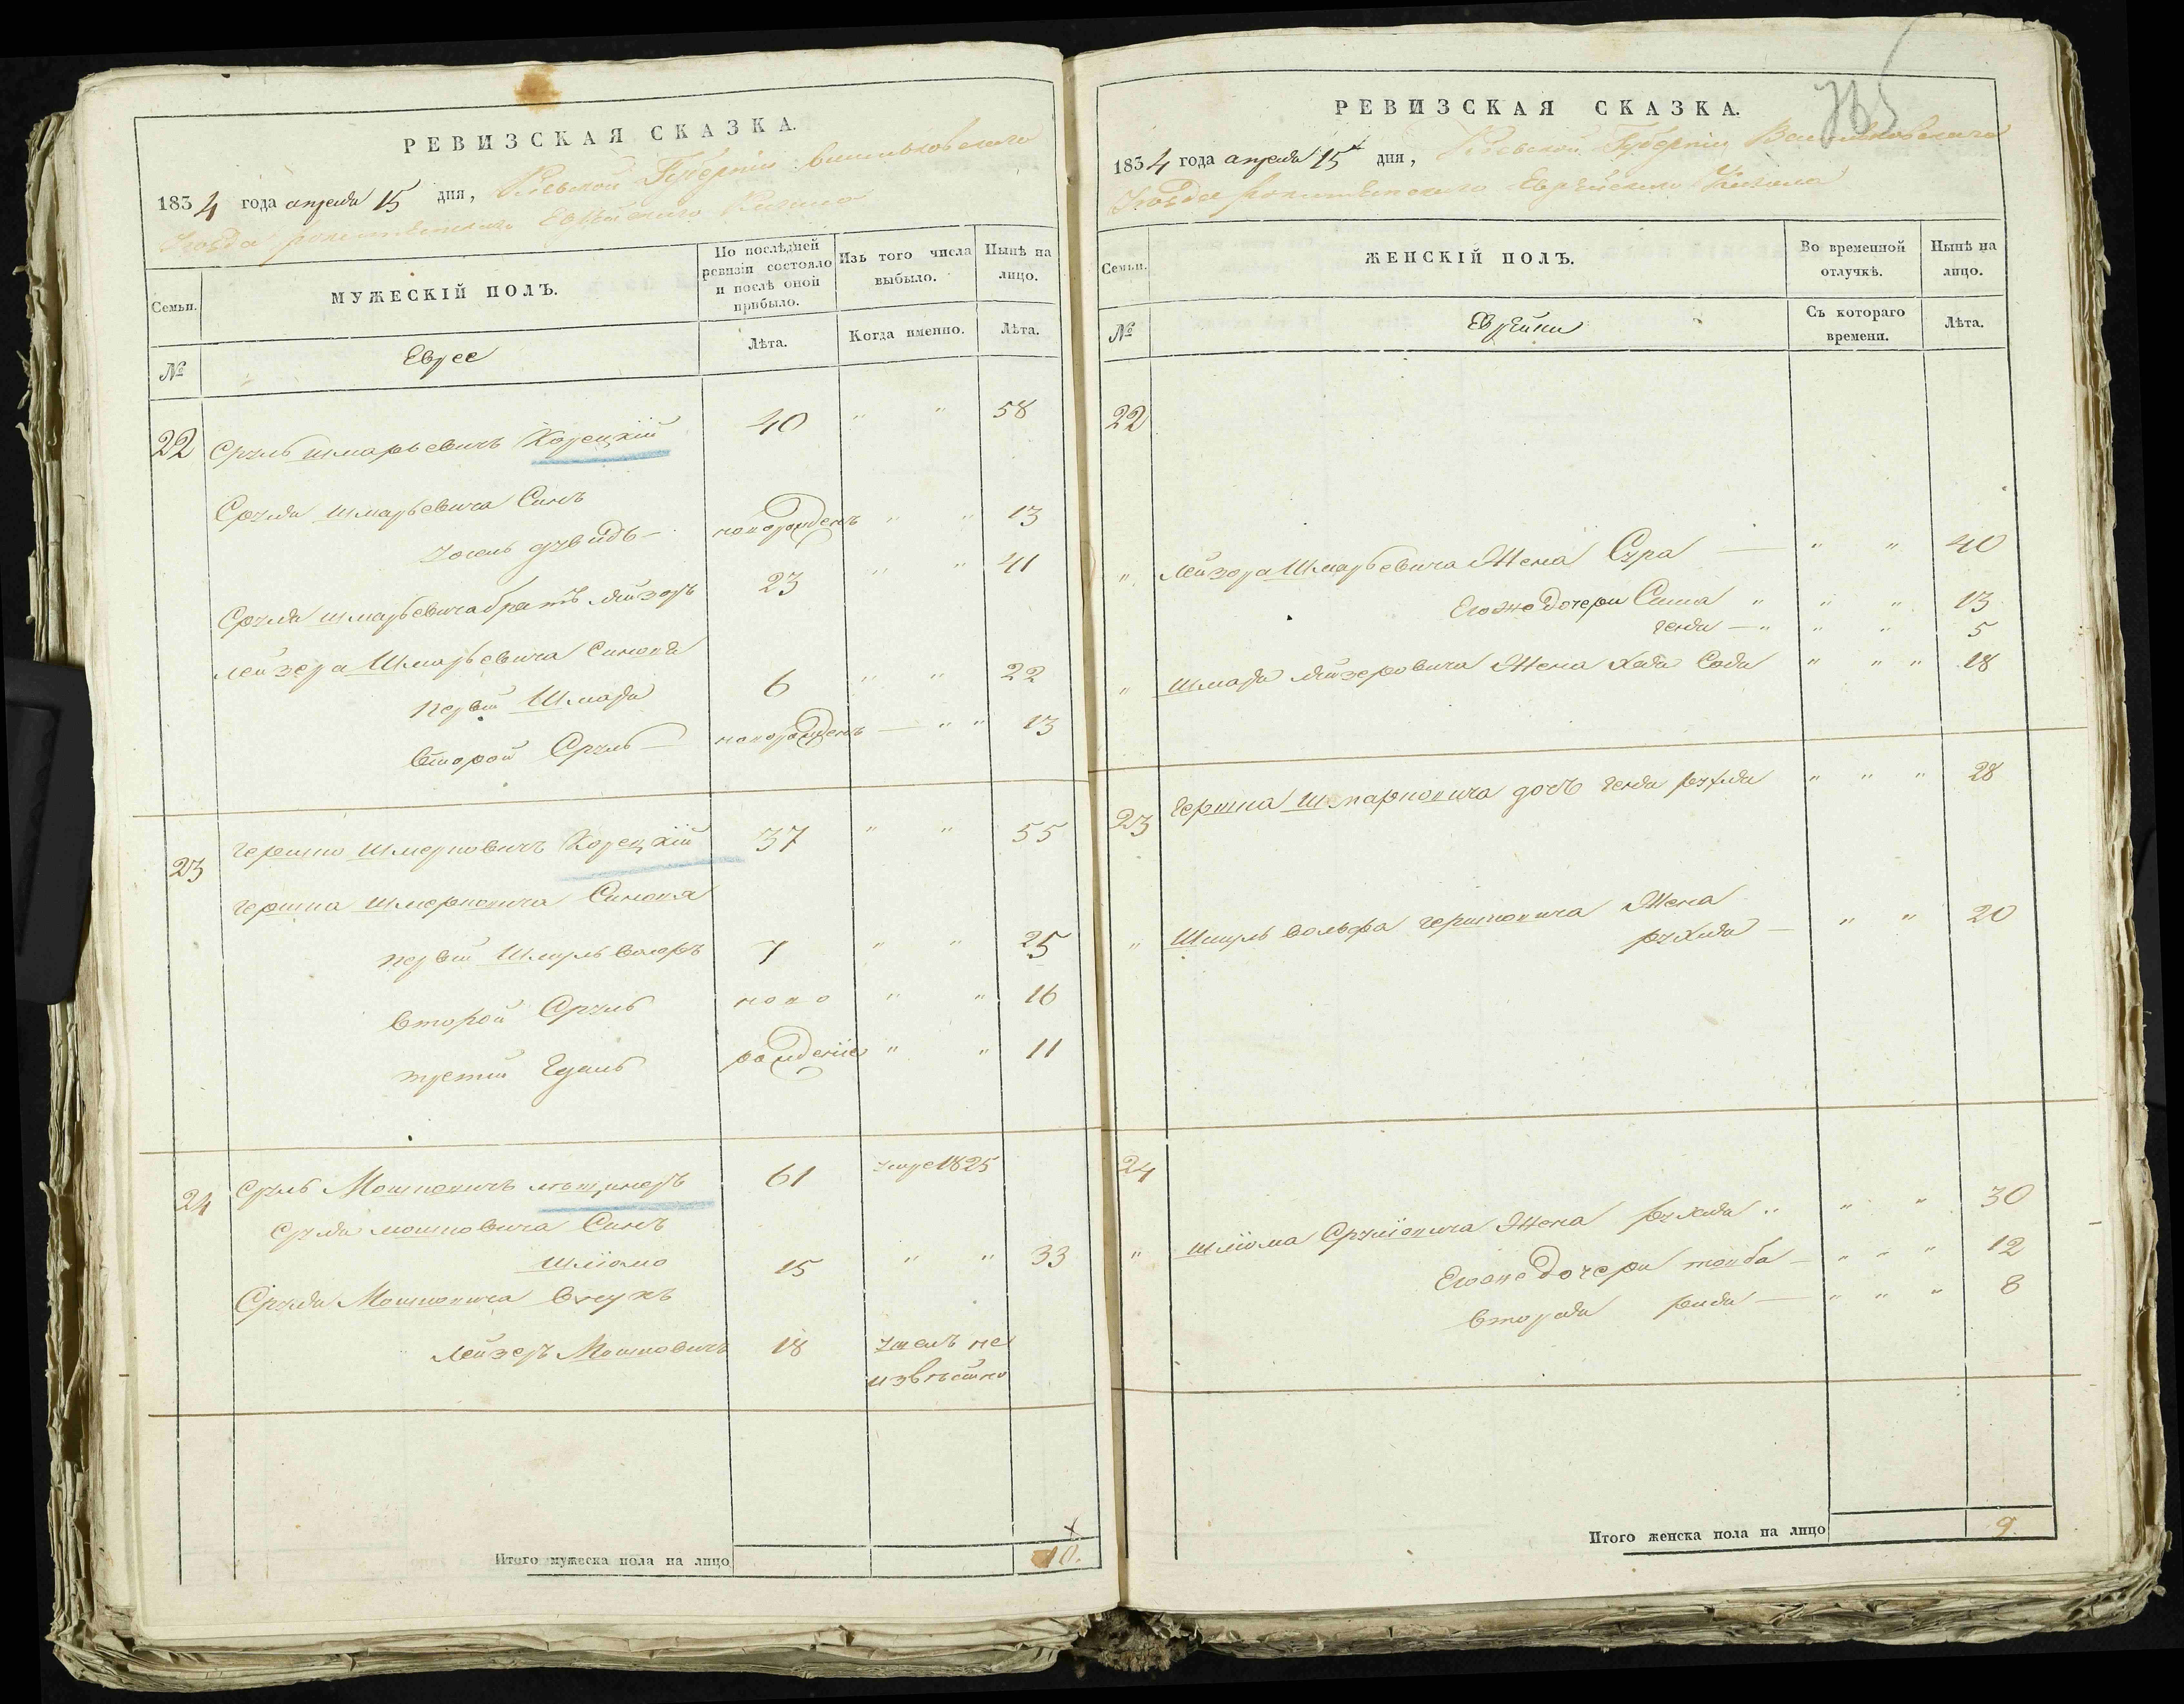 РЕВИЗСКАЯ СКАЗКА.
1834 года апреля 15 дня, Кіевской Губерніи Васильковского
Уезда рокитянского Еврейского Кагала
Семьи.
МУЖЕСКІЙ ПОЛЪ.
По послѣдней ревизіи состояло и послѣ оной прибыло.
Изъ того числа выбыло.
Нынѣ на лицо.
№
Еврее
Лѣта.
Когда именно.
Лѣта.
22 Сруль Шмарьевичъ Корецкій 40 " " 58
Сруля Шмарьевича Синъ
Іосель Дувидъ — новорожденъ " " 13
Сруля Шмарьевича братъ Лейзоръ 23 " " 41
Лейзера Шмарьевича Синовя
первій Шмаря 6 " " 22
Второй Сруль — новорожденъ — " " 13
23 Гершко Шмерковичъ Корецкій 37 " " 55
Гершка Шмерковича Синовя
первій Шмуль Волфъ 7 " " 25
Второй Сруль ново " " 16
третій Гдаль рожденіе " " 11
24 Сруль Мошковичъ 61 умре 1825
Сруля Мошковича Синъ
Шліома 15 " " 33
Сруля Мошковича Внукъ
Лейзеръ Мошковичъ 18 не
извѣстно
Итого мужеска пола на лицо 10.
765
РЕВИЗСКАЯ СКАЗКА.
1834 года апреля 15 дня, Кіевской Губерніи Васильковского
Уезда рокитянского Еврейского Кагала
Семьи.
ЖЕНСКІЙ ПОЛЪ.
Во временной отлучкѣ.
Нынѣ на лицо.
№
Еврейки
Съ котораго времени.
Лѣта.
22
" Лейзора Шмарьевича Жена Сура — " " 40
Его же дочери Сима " " " 13
Геня — " " " 5
" Шмаря Лейзеровича Жена Хая Сося " " " 18
23 Гершка Шмарковича дочь Геня Рухля " " " 28
" Шмуль Вольфа Гершковича Жена
Рухля — " " 20
24
" Шліома Срулiовича Жена Рухля " " " 30
Его же Дочери тойба — " " " 12
Вторая — " " " 8
Итого женска пола на лицо 9.